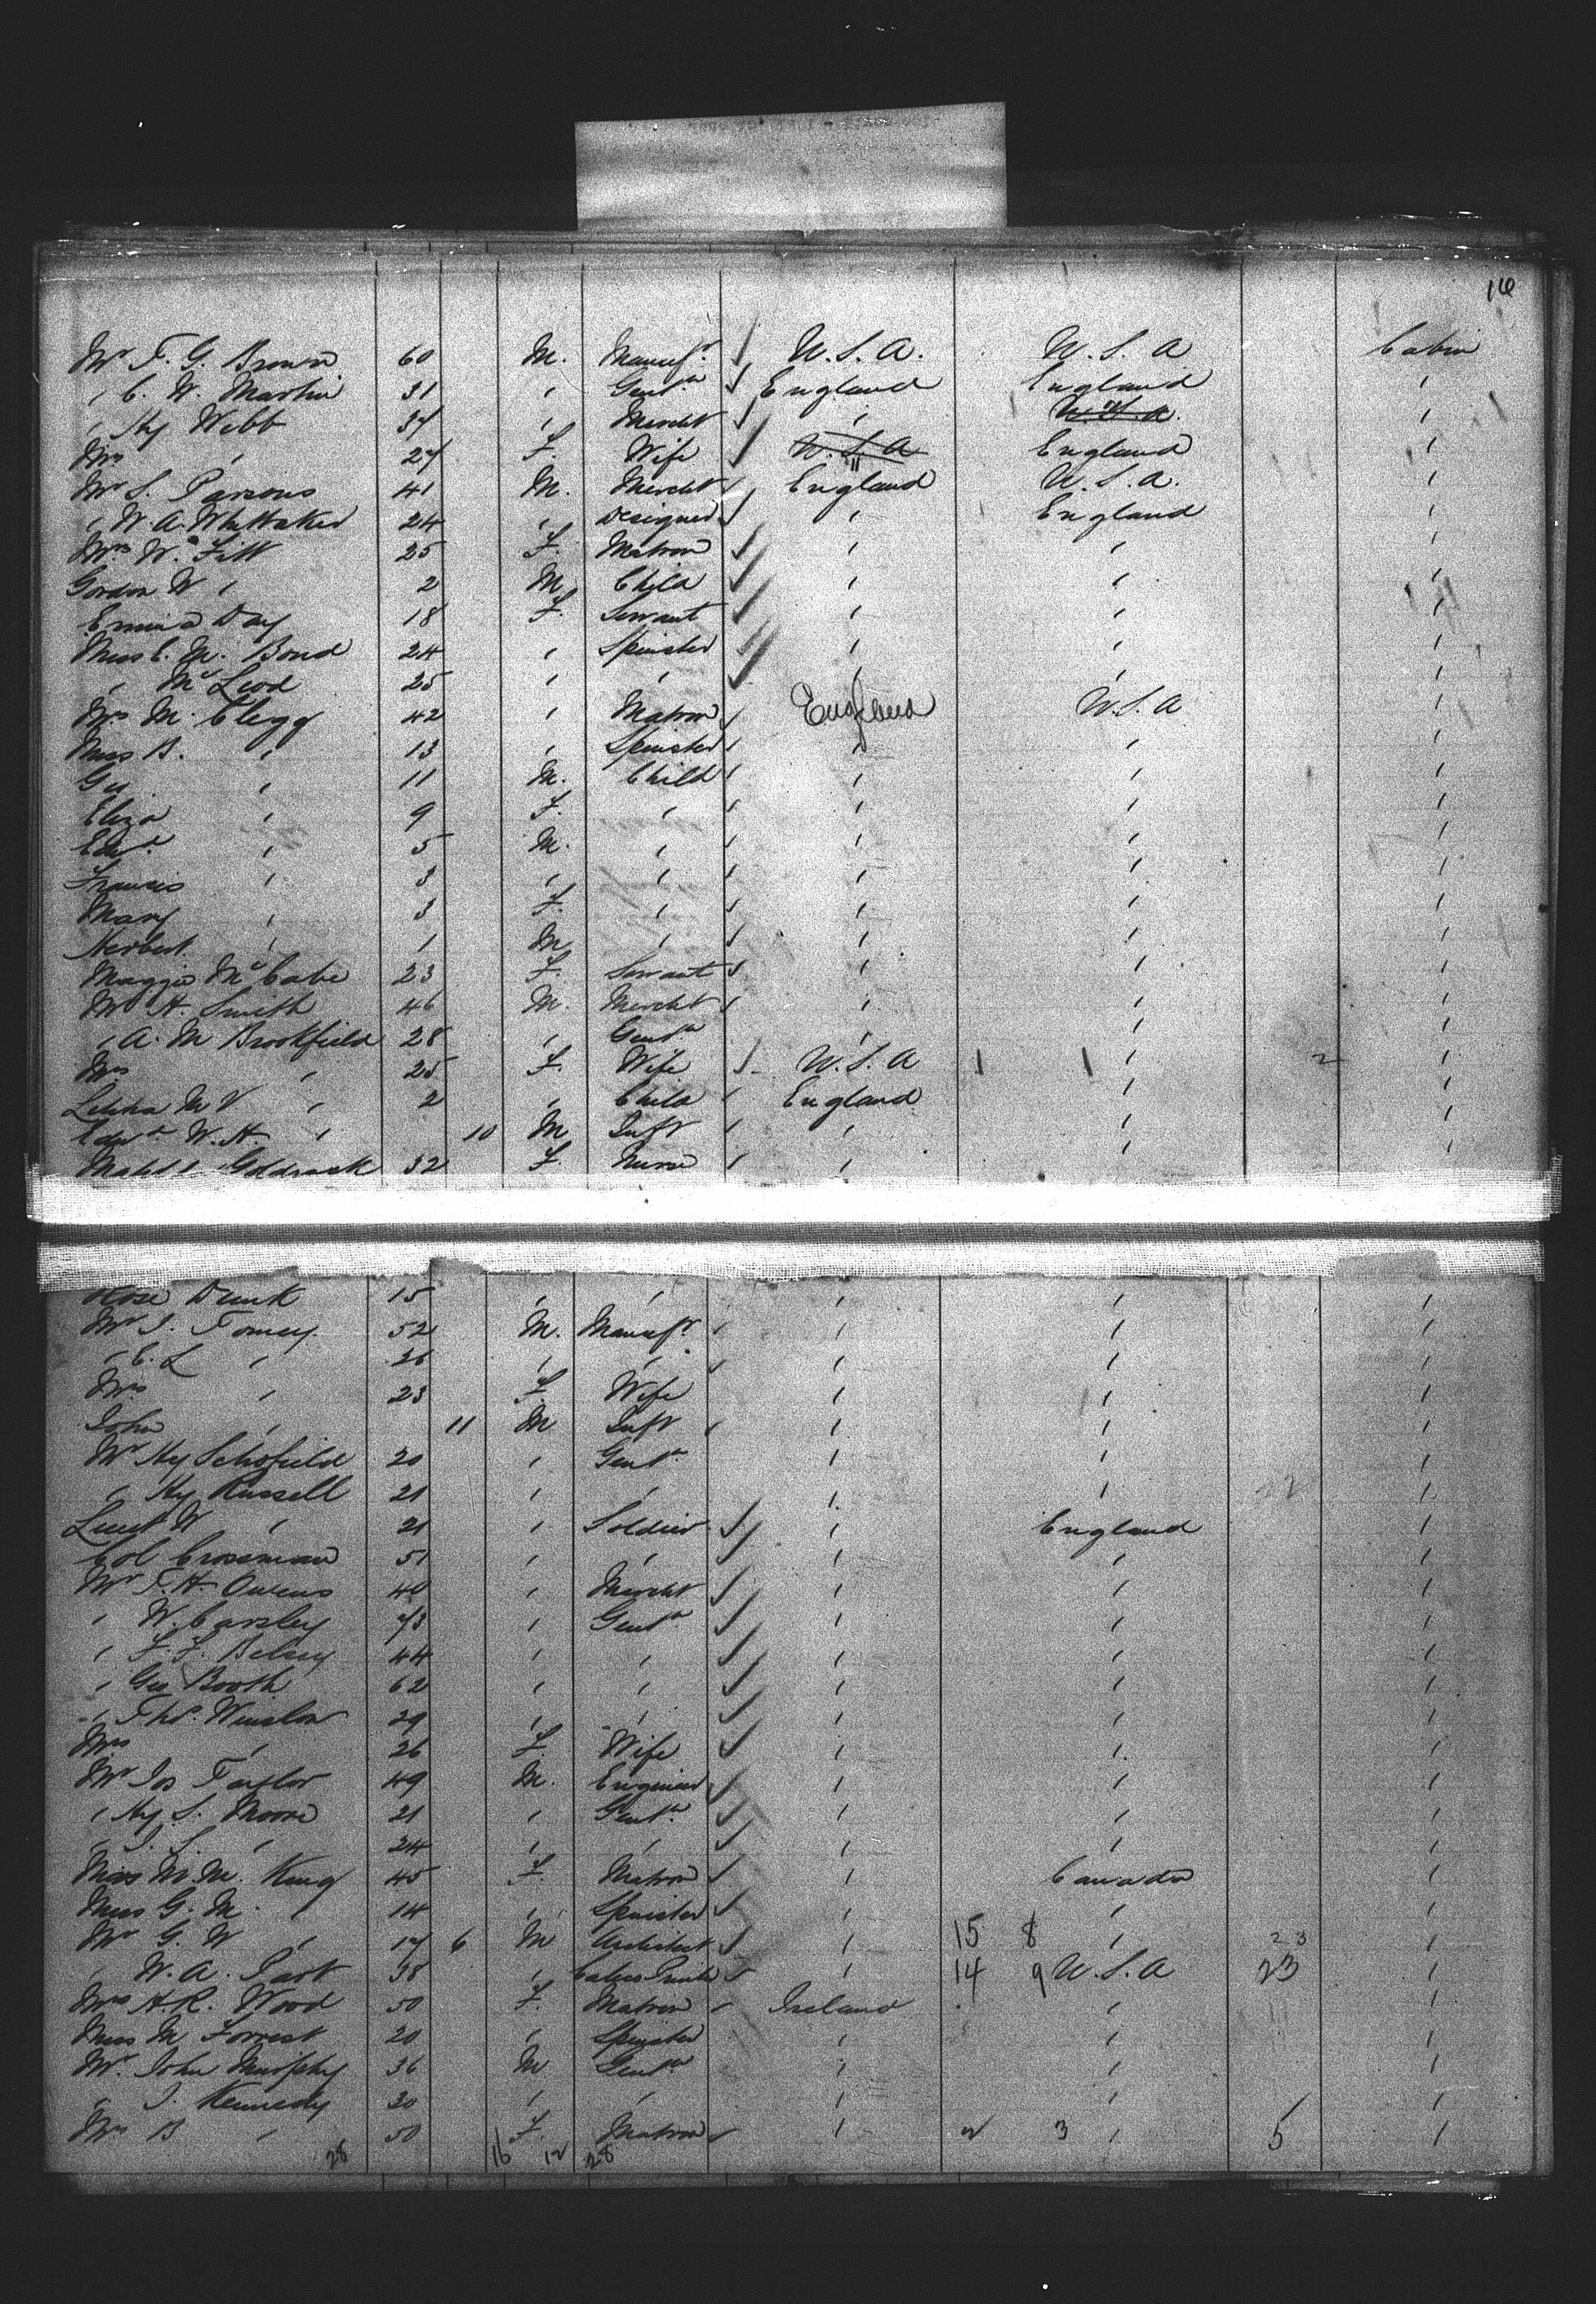 16
Mr F. G. Brown 60 M. Manufr U.S.A. U.S.A Cabin
" C. W. Martin 31 " Gentn England England "
" Hy Webb 34 " Mercht " U.S.A. "
Mrs " 27 F. Wife U.S.A England "
Mr S. Parsons 41 M. Mercht England U.S.A. "
" W. A. Whittaker 24 " Designer " England
Mrs W. Fitt 25 F. Matron " " "
Gordon W " 2 M Child " " "
Emma Day 18 F. Servant " " "
Miss C. M. Bond 24 " Spinster " " "
" McLeod 25 " " " " "
Mrs M. Clegg 42 " Matron England U.S.A "
Miss B. " 13 " Spinster " " "
Geo " 11 M. Child " " "
Eliza " 9 F. " " " "
Edwd " 5 M. " " " "
Francis " 3 " " " " "
Mary " 3 F. " " " "
Herbert " 1 M " " " "
Maggie McCabe 23 F. Servant " " "
Mr H. Smith 46 M. Mercht " " "
" A. M Brookfield 28 " Gentn " " "
Mrs " 25 F. Wife U.S.A " 2 "
M V " 2 " Child England " "
Edwd W. H. " 10 M Inft " " "
32 F. Nurse " " "
Rose Dunk 15 " " " " "
Mr J. Tomey 52 M. Manufr " " "
" C. L " 26 " " " " "
Mrs " 23 F. Wife " " "
John " 11 M Inft " " "
Mr Hy Schofield 20 " Gentn " " "
" Hy Russell 21 " " " " "
Lieut W " 21 " Soldier " England "
Col Crossman 51 " " " " "
Mr F. H. Owens 40 " Mercht " " "
" W. Carsley 73 " Gentn " " "
" F. F. Belsey 44 " " " " "
" Geo Booth 62 " " " " "
" Thos. Winslow 29 " " " " "
Mrs " 26 F. Wife " " "
Mr Jos Taylor 49 M. Engineer " " "
" Hy S. Moore 21 " Gentn " " "
" J. S. " 24 " " " " "
Mrs M. M. King 45 F. Matron " Canada "
Miss G. M. " 14 " Spinster " " "
Mr G. W " 17 6 M Architect " 15 8 " 23 "
" W. A. 38 " " 14 9 U.S.A 23 "
Mrs H. R. Wood 50 F. Matron Ireland " "
Miss M Forrest 20 " Spinster " " "
Mr. John Murphy 36 M Gentn " " "
" J. Kennedy 30 " " " " "
Mrs B " 50 F. Matron " 2 3 " 5 "
28 16 12 28